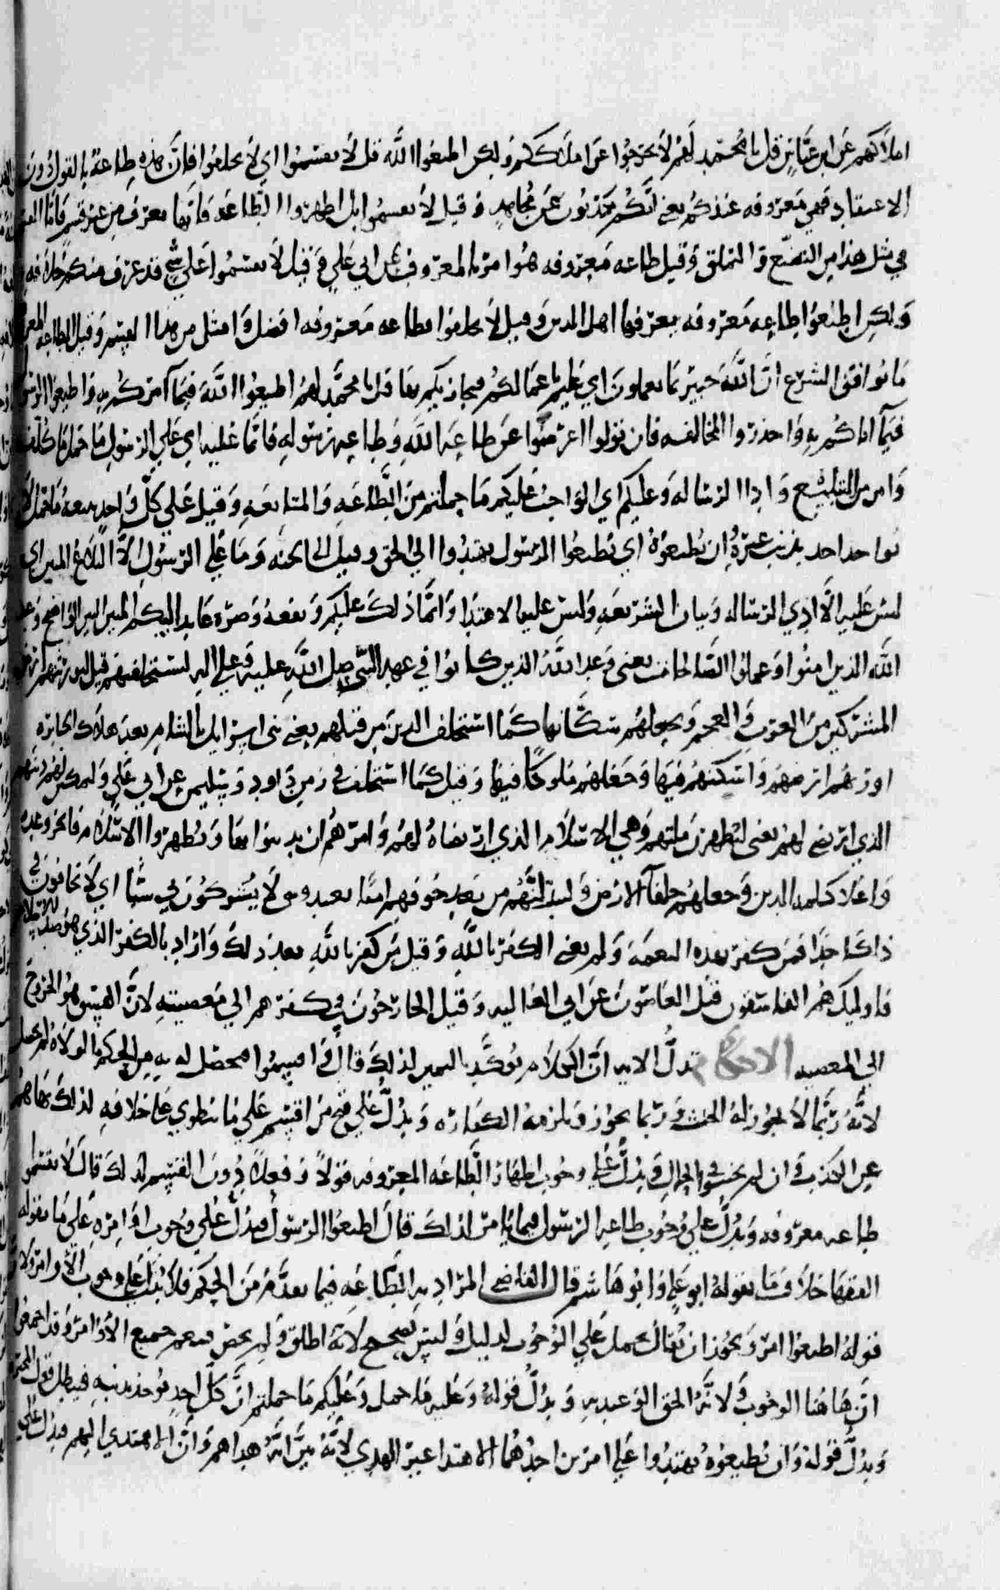 املاكهم عن ابن عباس قل يا محمد لهم لا تخرجوا عن املاككم ولكن اطيعوا الله قل لا تقسموا اي لا تحلفوا فان هذه طاعة بالقول دون
الاعتقاد فهي معروفه عندكم يعني انكم تكذبون عن مجاهد وقيل لا تقسموا بل اظهروا الطاعه فانها معرف من غير قسم فاما القسم
في مثل هذا من التصنع والتملق وقيل طاعه معروفه هوا مر بالمعروف عن ابي علي وقيل لا تقسموا على شي قد عرف منكم خلافه
ولكن اطيعوا طاعه معروفه يعرفها اهل الدين وقيل لا تحلفوا فطاعه معروفه افضل وامثل من هذا القسم وقيل الطاعه المعروفه
ما توافق الشرع ان الله خبير بما تعملون اي عليم باعمالكم فيجازيكم بها قل يا محمد لهم اطيعوا الله فيما امركم به واطيعوا الرسول
فيما اتاكم به واحذروا المخالفه فان تولوا اعرضوا عن طاعه الله وطاعه رسوله فانما عليه اي علي الرسول ما حمل ما كلف
وامر من التبليغ وادا الرساله وعليكم اي الواجب عليكم ما حملتم من الطاعه والمتابعه وقيل علي كل واحد تبعه ما حمل
يواخذ احد بذنب غيره وان تطيعوه اي تطيعوا الرسول تهتدوا الي الحق وقيل الي الجنه وما علي الرسول الا البلاغ المبين اي
ليس عليه الا ادي الرساله وبيان الشريعه وليس عليه الاهتدا وانما ذلك عليكم ونفعه وضره عايد اليكم المبين البين الواضح وعد
الله الذين امنوا وعملوا الصالحات يعني وعد الله الذين كانوا في عهد النبي صلى الله عليه وعلى اله ليستخلفنهم قيل ليورثنهم ارض
المشركين من العرب والعجم ويجعلهم سكانها كما استخلف الذين من قبلهم يعني بني اسرايل بالشام بعد هلاك الجبابره
اورثهم ارضهم واسكنهم فيها وجعلهم ملوكا فيها وقيل كما استخلف في زمن داود وسليمن عن ابي علي وليمكنن لهم دينهم
الذي ارتضى لهم يعني ليظهرن ملتهم وهي الاسلام الذي ارتضاه لهم وامرهم ان يدينوا بها ويظهروا الاسلام فانجز وعده
واعلا كلمه الدين وجعلهم خلفآ الارض وليبدلنهم من بعد خوفهم امنا يعبدونني لا يشركون بي شيا اي لا يخافون في
ذلك احدا فمن كفر بهذه النعمه ولم يعني الكفر بالله وقيل من كفر بالله بعد ذلك واراد بالكفر الذي هو ضد الاسلام
فاوليك هم الفاسقون قيل العاصون عن ابي العاليه وقيل الخارجون في كفرهم الي معصيته لان الفسق هو الخروج
الي المعصيه الاحكام تدل الايه ان الكلام يوكد باليمين لذلك قال واقسموا فحصل له به من الحكم ما لولاه لم يحصل
لانه ربما لا يجوز له الحنث وربما يجوز ويلزمه الكفاره ويدل على قبح من اقسم على ما ينطوي على خلافه لذلك نهاهم
عن الكذب وان لم يحنثوا في الحال ويدل على وجوب اظهار الطاعه المعروفه قولا وفعلا دون القسم لذلك قال لا تقسموا
طاعه معروفه ويدل علي وجوب طاعه الرسول فيما يامر لذلك قال اطيعوا الرسول فيدل علي وجوب اوامره على ما يقوله
الفقها خلاف ما يقوله ابو علي وابو هاشم قال القاضي المراد به الطاعه فيما تقدم من الحكم فلا يدل علي وجوب الاوامر ولان
قوله اطيعوا امر ويجوز ان يقال يحمل علي الوجوب لدليل وليس بصحيح لانه اطلق ولم يخص فيعم جميع الاوامر وقد اجمعوا
ان هاهنا الوجوب ولانه الحق الوعيد به ويدل قوله وعليه ما حمل وعليكم ما حملتم ان كل احد يوخذ بذنبه فيبطل قول المجبره
ويدل قوله وان تطيعوه تهتدوا علي امرين احدهما الاهتدا غير الهدي لانه بين انه هداهم وان الاهتدي اليهم فيدل على